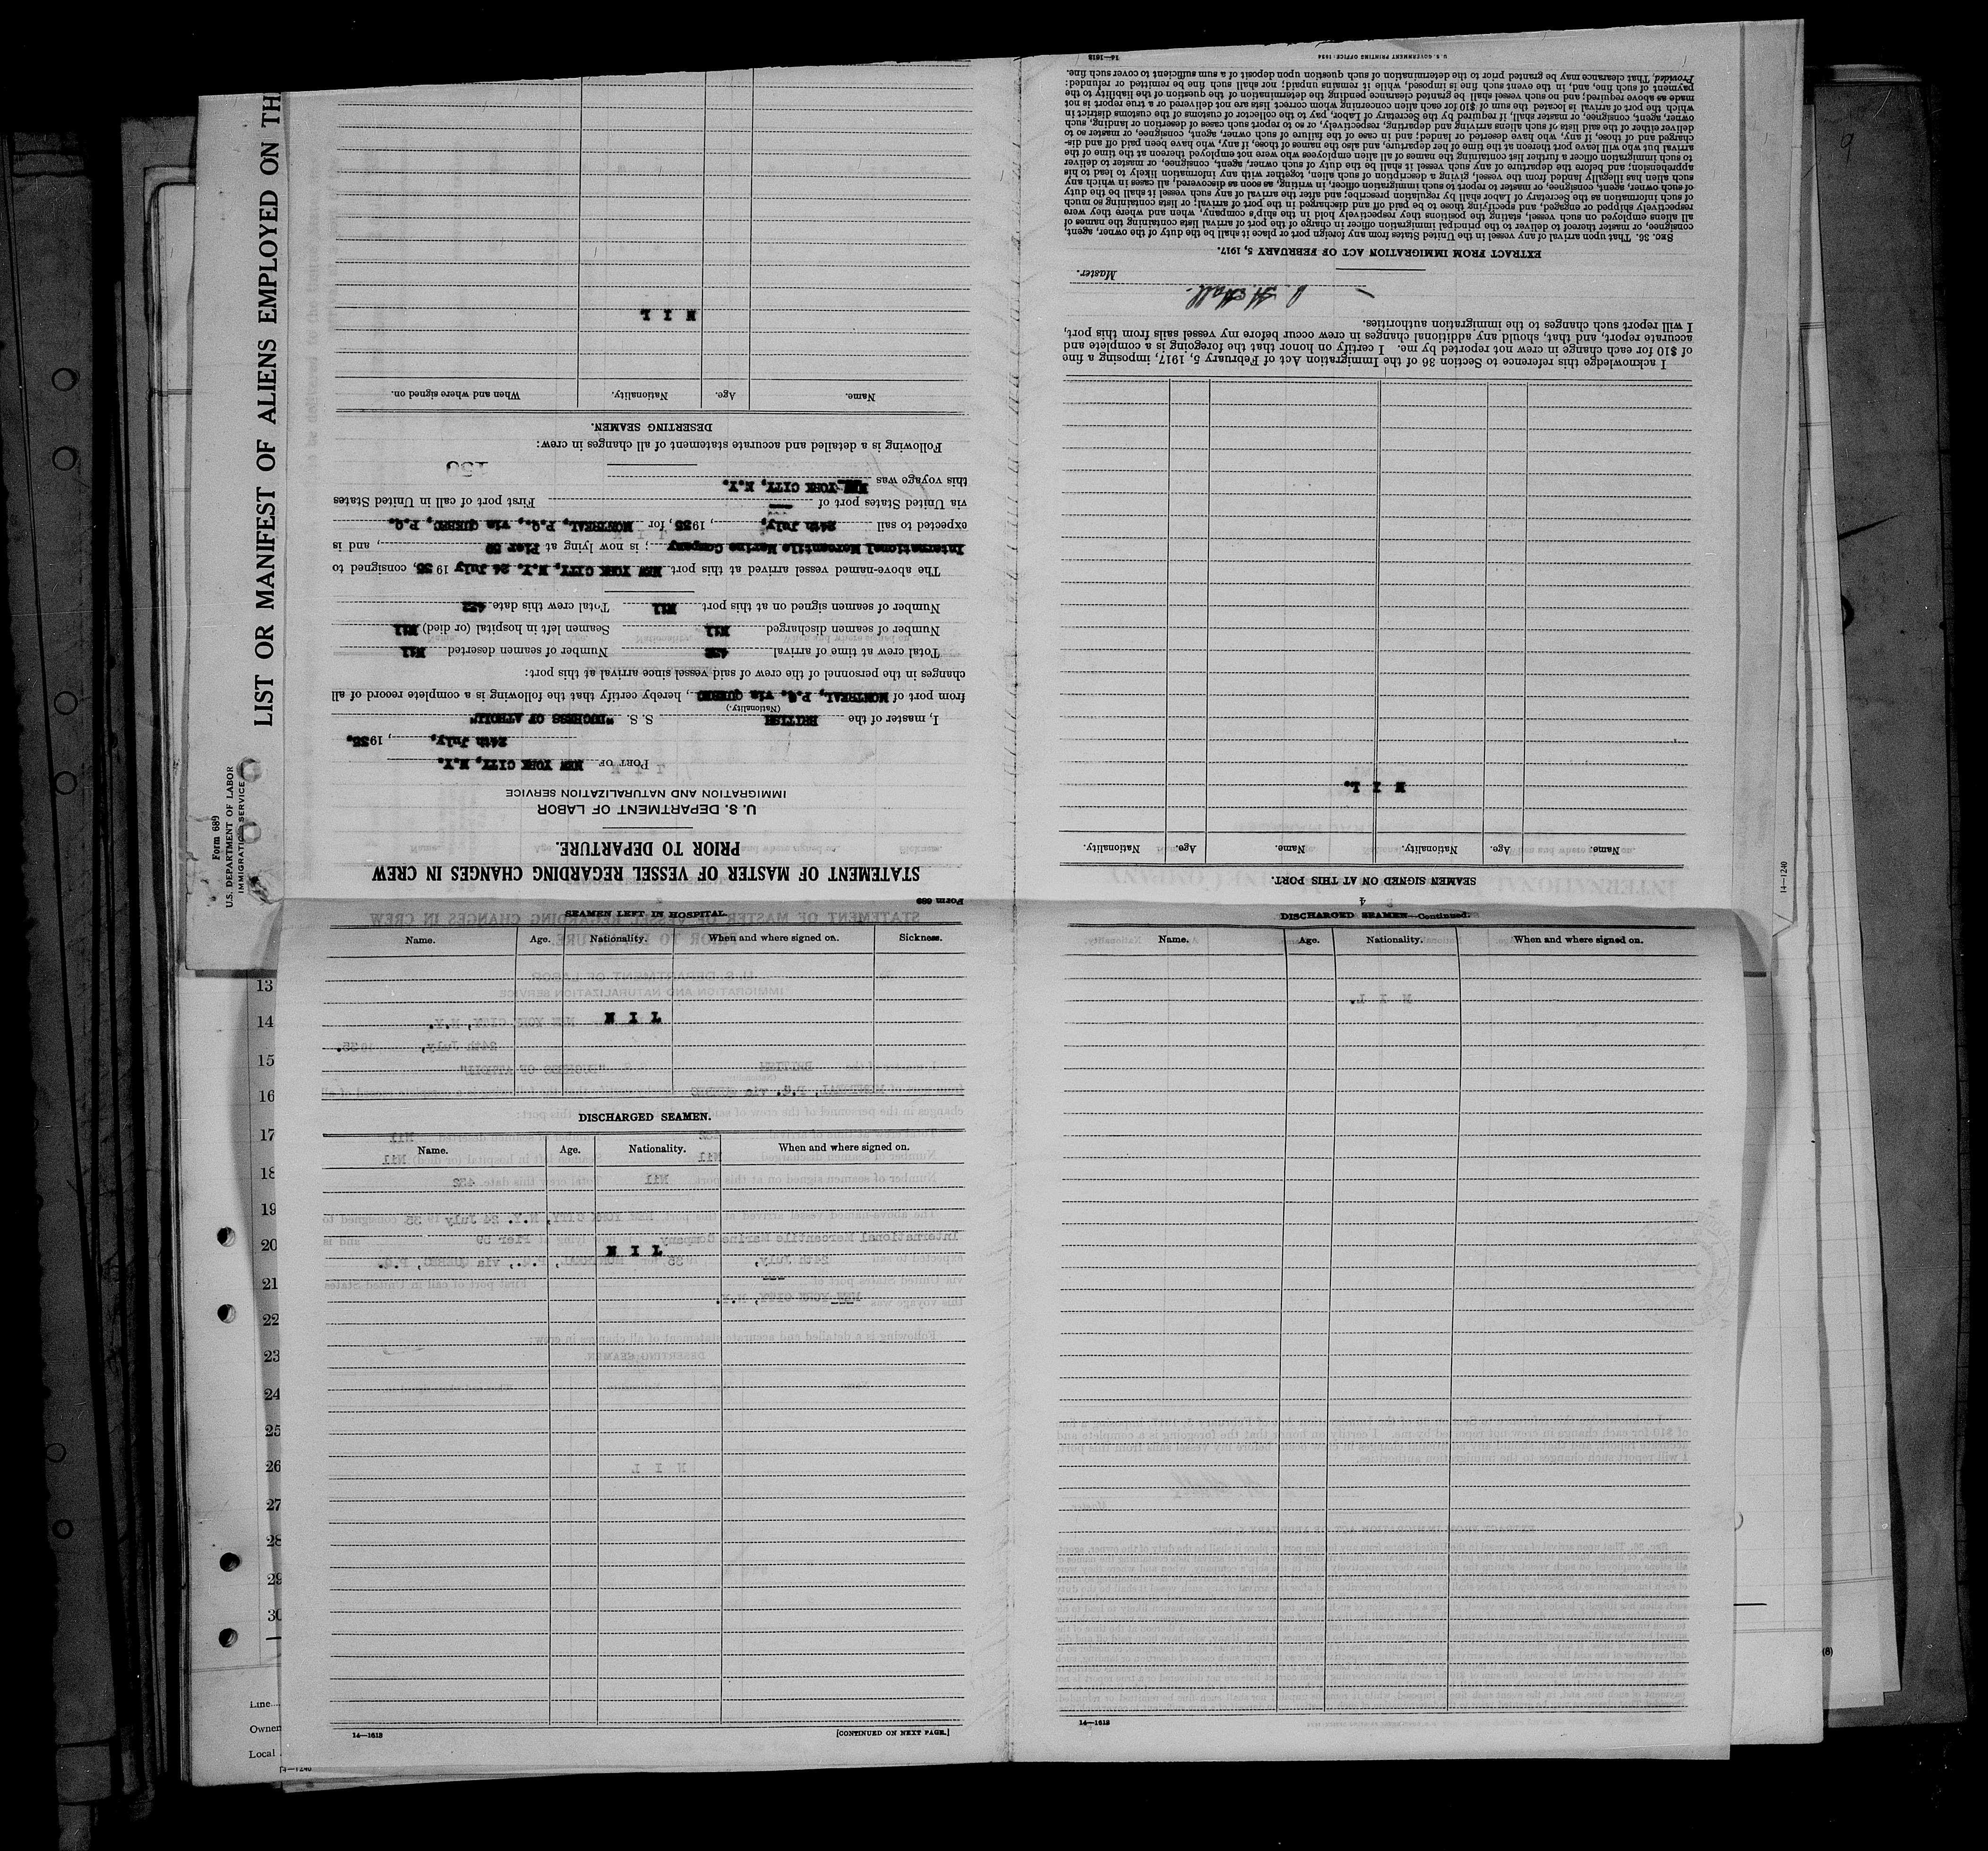 LIST OR MANIFEST OF ALIENS EMPLOYED ON TH
Form 689
U.S. DEPARTMENT OF LABOR
IMMIGRATION SERVICE
Form 689
STATEMENT OF MASTER OF VESSEL REGARDING CHANGES IN CREW
PRIOR TO DEPARTURE.
U. S. DEPARTMENT OF LABOR
IMMIGRATION AND NATURALIZATION SERVICE
PORT OF NEW YORK CITY, N.Y.
24th July, , 1935.
I, master of the BRITISH S. S. "DUCHESS OF ATHOLL"
(Nationality.)
from port of MONTREAL, P.Q. via QUEBEC , hereby certify that the following is a complete record of all
changes in the personnel of the crew of said vessel since arrival at this port:
Total crew at time of arrival 432 Number of seamen deserted Nil
Number of seamen discharged Nil Seamen left in hospital (or died) Nil
Number of seamen signed on at this port Nil Total crew this date 432
The above-named vessel arrived at this port NEW YORK CITY, N.Y. 24 July 19 35, consigned to
International Mercantile Marine Company ; is now lying at Pier 59 , and is
expected to sail 24th July, , 1935, for MONTREAL, P.Q., via QUEBEC, P.Q.
via United States port of --- First port of call in United States
this voyage was NEW YORK CITY, N.Y.
Following is a detailed and accurate statement of all changes in crew:
DESERTING SEAMEN.
Name. Age. Nationality. When and where signed on.
N I L
SEAMEN SIGNED ON AT THIS PORT.
Name. Age. Nationality. Name. Age. Nationality.
N I L.
I acknowledge this reference to Section 36 of the Immigration Act of February 5, 1917, imposing a fine
of $10 for each change in crew not reported by me. I certify on honor that the foregoing is a complete and
accurate report, and that, should any additional changes in crew occur before my vessel sails from this port,
I will report such changes to the immigration authorities.
Master.
EXTRACT FROM IMMIGRATION ACT OF FEBRUARY 5, 1917.
SEC. 36. That upon arrival of any vessel in the United States from any foreign port or place it shall be the duty of the owner, agent,
consignee, or master thereof to deliver to the principal immigration officer in charge of the port of arrival lists containing the names of
all aliens employed on such vessel, stating the positions they respectively hold in the ship's company, when and where they were
respectively shipped or engaged, and specifying those to be paid off and discharged in the port of arrival; or lists containing so much
of such information as the Secretary of Labor shall by regulation prescribe; and after the arrival of any such vessel it shall be the duty
of such owner, agent, consignee, or master to report to such immigration officer, in writing, as soon as discovered, all cases in which any
such alien has illegally landed from the vessel, giving a description of such alien, together with any information likely to lead to his
apprehension; and before the departure of any such vessel it shall be the duty of such owner, agent, consignee, or master to deliver
to such immigration officer a further list containing the names of all alien employees who were not employed thereon at the time of the
arrival but who will leave port thereon at the time of her departure, and also the names of those, if any, who have been paid off and dis-
charged and of those, if any, who have deserted or landed; and in case of the failure of such owner, agent, consignee, or master so to
deliver either of the said lists of such aliens arriving and departing, respectively, or so to report such cases of desertion or landing, such
owner, agent, consignee, or master shall, if required by the Secretary of Labor, pay to the collector of customs of the customs district in
which the port of arrival is located the sum of $10 for each alien concerning whom correct lists are not delivered or a true report is not
made as above required; and no such vessel shall be granted clearance pending the determination of the question of the liability to the
payment of such fine, and, in the event such fine is imposed, while it remains unpaid; nor shall such fine be remitted or refunded:
Provided, That clearance may be granted prior to the determination of such question upon deposit of a sum sufficient to cover such fine.
14—1613
U. S. GOVERNMENT PRINTING OFFICE: 1934
14-1240
SEAMEN LEFT IN HOSPITAL.
Name. Age. Nationality. When and where signed on. Sickness.
N I L
DISCHARGED SEAMEN.
Name. Age. Nationality. When and where signed on.
N I L
14—1613
[CONTINUED ON NEXT PAGE.]
4
DISCHARGED SEAMEN—Continued.
Name. Age. Nationality. When and where signed on.
14—1613
13
14
15
16
17
18
19
20
21
22
23
24
25
26
27
28
29
30
Line
Owner
Local
14—1240
(8)